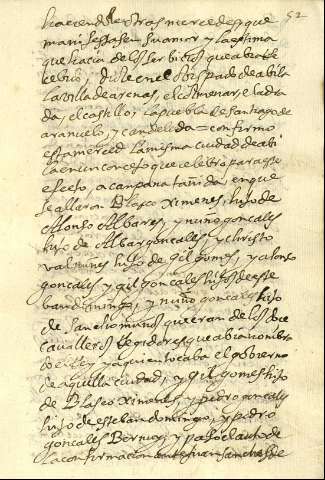 52
haciendole otras mercedes que
manifestasen su amor y la estima
que hacia de los serbicios que abia re
cebido, diole en el obispado de abila
la villa de arenas, el colmenar, el adra
da, el castillo, y la puebla de santiago de
arañuelo, y candeleda = confirmo
esta merced la misma ciudad de abi
la en un concejo que celebro para este
efecto, a campana tañida, en que
se allaron Blasco Ximenes, hijo de
Alfonso Albares, y nuño gonçales
hijo de Albargonçales, y christo
val nunes hijo de gil gomes, y alonso
gonçales y gil gonçales hijos de este
ban domingo, y nuño gonçales hijo
de sancho muños que eran de los doce
cavalleros Regidores que abia nombra
do el Rey y a quien tocaba el gobierno
de aquella ciudad, y gil gomes hijo
de Blasco Ximenes, y pedro gonçales
hijo de esteban domingo, y pedro
gonçales Bermuy, y paso el auto de
la confirmacion ante juan sanches de